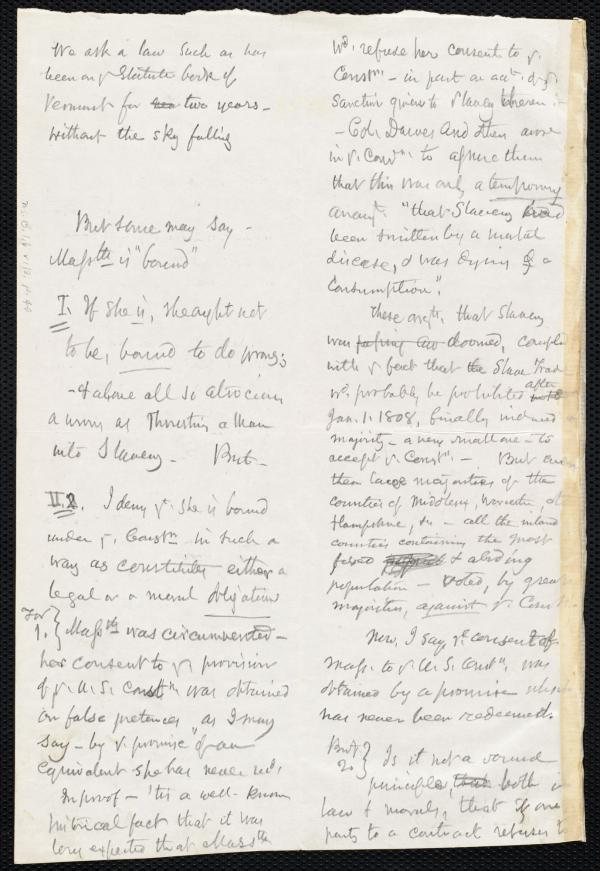 We ask a law such as has
been on yᵉ Statute book of
Vermont for two years –
without the sky falling
But some may say –
Massᵗᵗˢ is "bound"
I. If she is, she ought not
to be, bound to do wrong;
– & above all so atrocious
a wrong as thrusting a man
into Slavery – But –
II. 2. I deny yᵗ she is bound
under yᵉ Constⁿ in such a
way as constitutes either a
legal or a moral obligation
For
1. } Massᵗᵗˢ was circumvented –
her consent to yᵉ provision
of yᵉ U.S. Constⁿ was obtained
on false pretences, as I may
say – by yᵉ promise of an
equivalent she has never recᵈ.
In proof – 'tis a well-known
historical fact that it was
very expected that Massᵗᵗˢ
wᵈ. refuse her consent to yᵉ
Constⁿ. – in part on accᵗ. of yᵉ
sanction given to Slavery therein
– Col. Dawes and others arose
in yᵉ Convⁿ. to assure them
that this was only a temporary
arangᵗ. "that Slavery had
been smitten by a mortal
disease, & was dying of a
Consumption".
These argᵗˢ. that Slavery
was doomed, coupled
with yᵉ fact that the Slave Trade
wᵈ. probably be prohibited after
Jan. 1. 1808, finally induced a
majority – a very small one – to
accept yᵉ Constⁿ. – But even
then large majorities of the
counties of Middlesex, Worcester,
Hampshire, &c – all the inland
counties containing the most
fixed & abiding
population – voted, by great
majorities, against yᵉ Constⁿ.
Now, I say, yᵉ consent of
Mass. to yᵉ U.S. Constⁿ. was
obtained by a promise which
has never been redeemed.
But
2. } Is it not a sound
principle, that both in
law & morals, that if one
party to a contract refuses to